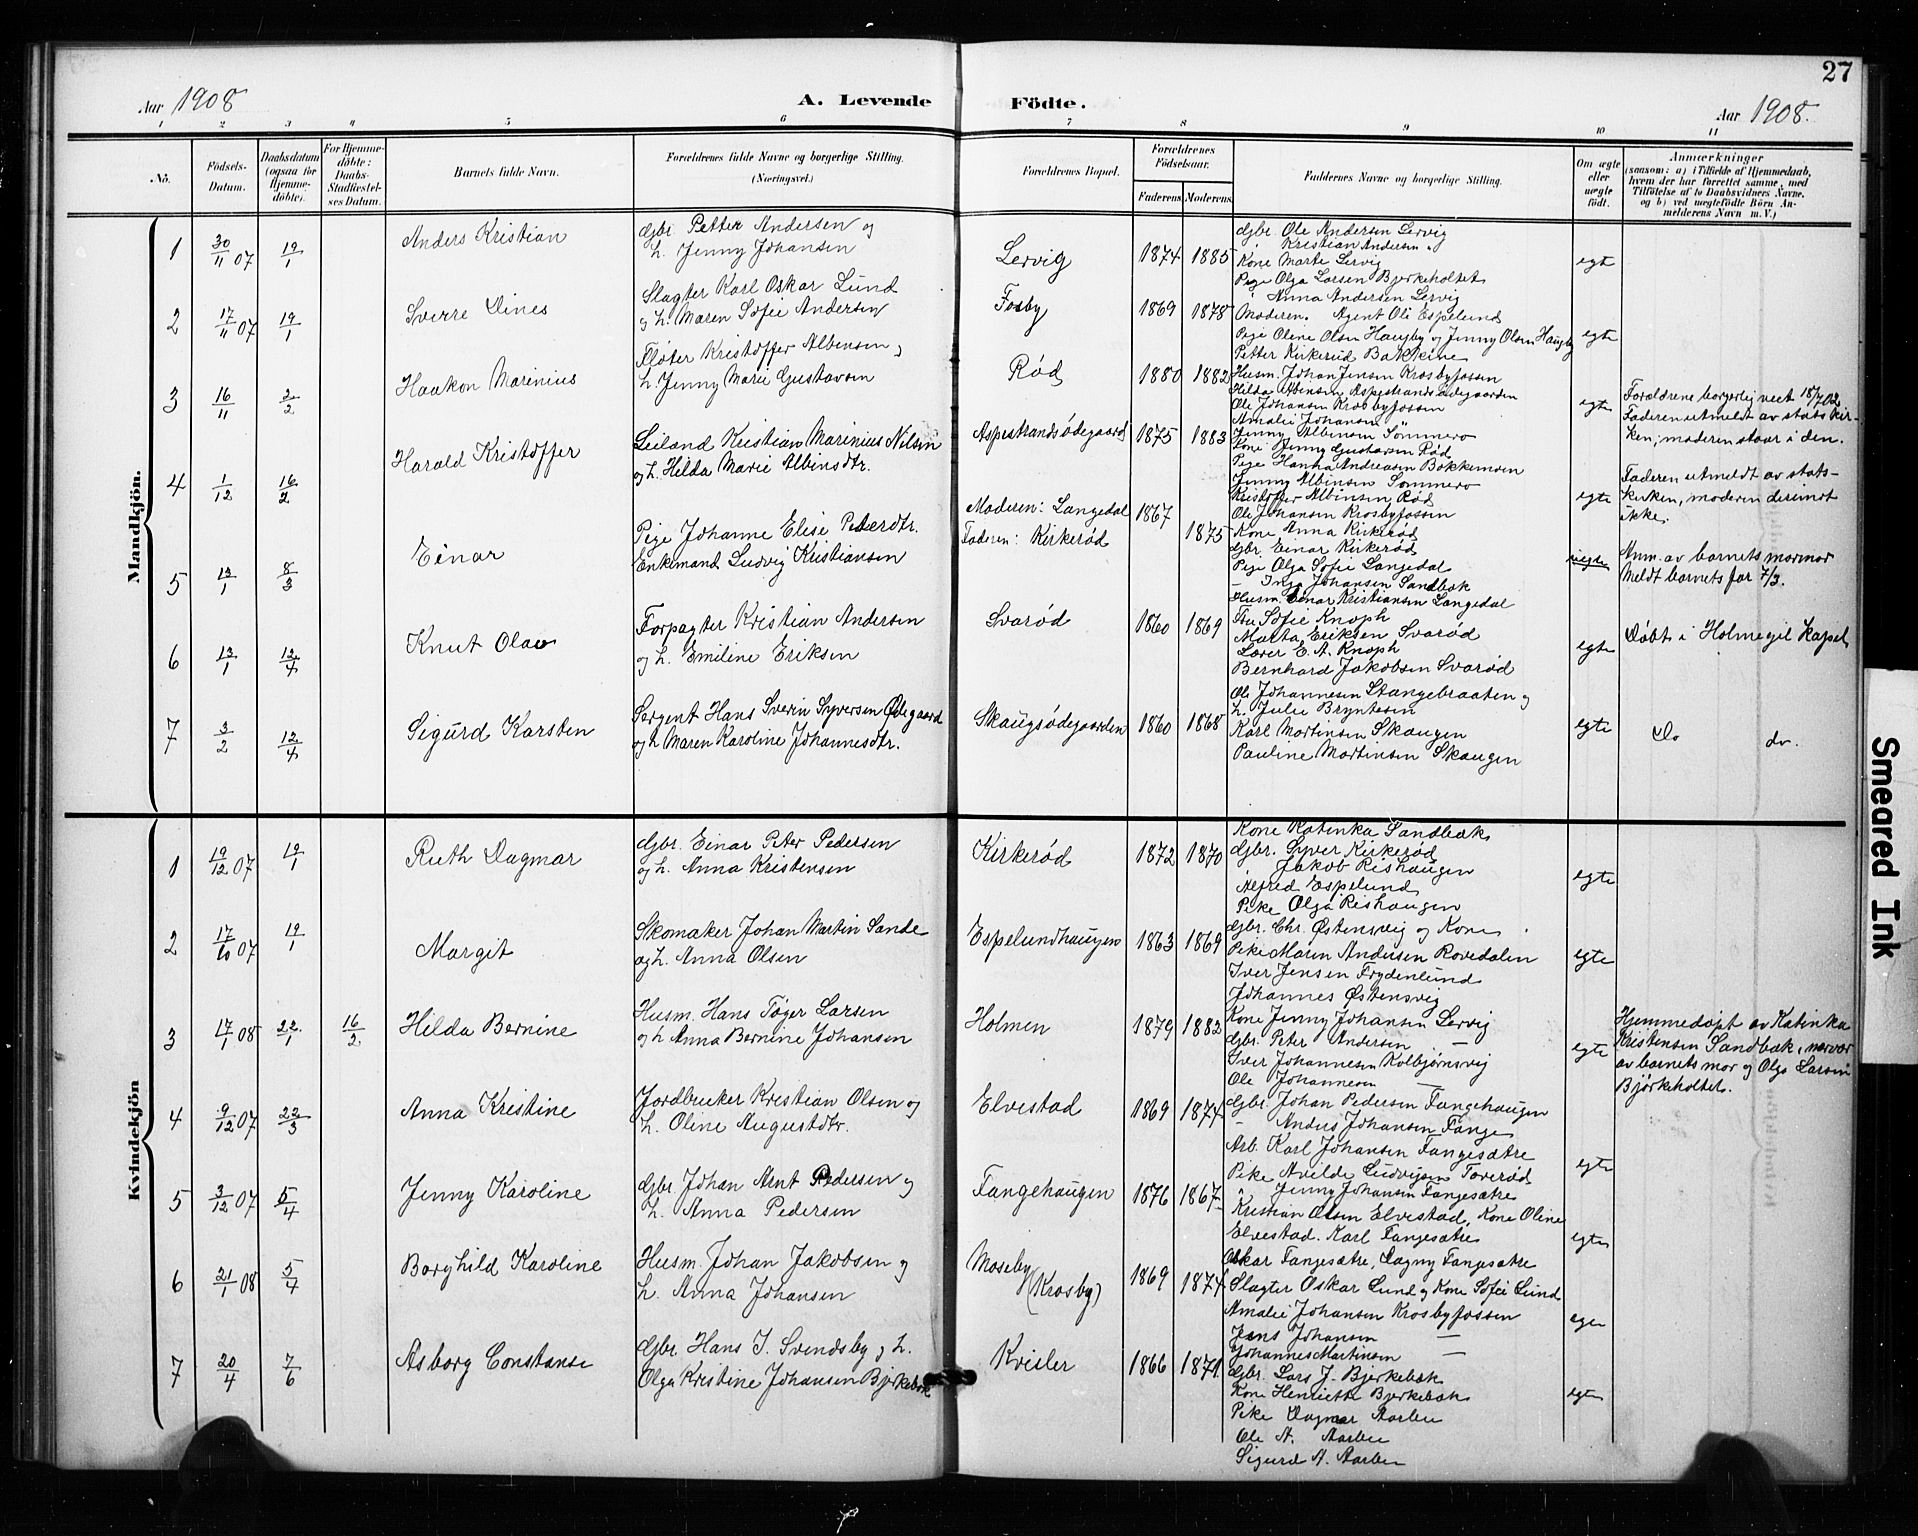 27
Aar 1908
A. Levende Födte.
Aar 1908.
1 2 3 4 5 6 7 8 9 10 11
No.
Födsels-Datum.
Daabsdatum (ogsaa for Hjemme-döbte).
For Hjemme-döbte: Daabs-Stadfæstel-ses Datum.
Barnets fulde Navn.
Forældrenes fulde Navne og borgerlige Stilling. (Næringsvei.)
Forældrenes Bopæl.
Forældrenes Födselsaar.
Faderens Moderens
Faddernes Navne og borgerlige Stilling.
Om ægte eller uægte födt.
Anmærkninger
(saasom: a) i Tilfælde af Hjemmedaab, hvem der har forrettet samme, med Tilföielse af to Daabsvidners Navne, og b) ved uægtefödte Börn An-melderens Navn m. V.)
Mandkjön.
1 30/11 07 19/1 Anders Kristian
Gbr. Petter Andersen og
h. Jenny Johansen
Lervig 1874 1885
Gbr. Ole Andersen Lervig
Kristian Andersen "
Kone Marte Lervig
Pige Olga Larsen Bjerkeholtet
" Anna Andersen Lervig
egte
2 17/11 07 19/1 Sverre Dines
Slagter Karl Oskar Lund
og h. Maren Sofie Andersen
Fosby 1869 1878
Moderen. Agent Ole Espelund
Pige Oline Olsen Haugby og Jenny Olsen Haugby
Petter Kirkerud Bakkene
egte
3 16/11 2/2 Haakon Marinius
Fløter Kristoffer Albinsen og
h. Jenny Marie Gustavsen
Rød 1880 1882
Husm. Johan Jensen Krosbyfossen
Hilda Albinsen Aspestrandsødegaarden
Ole Johansen Krosbyfossen
Amalie Johansen "
Jenny Albinsen Sommero
egte
Forældrene borgerlig viet 18/7 02
Faderen utmeldt av statskir-
ken, moderen staar i den.
4 1/12 16/2 Harald Kristoffer
Leiland Kristian Marinius Nilsen
og h. Hilda Marie Albinsdtr.
Aspestrandsødegaard 1875 1883
Kone Jenny Gustavsen Rød
Pige Hanna Andreasen Bakkemoen
Jenny Albinsen Sommero
Kristoffer Albinsen Rød
Ole Johansen Krosbyfossen
egte
Faderen utmeldt av stats-
kirken, moderen derimot
ikke.
5 12/1 8/3 Einar
Pige Johanne Elise Pedersdtr.
Enkemand Ludvig Kristiansen
Moderen: Langedal
Faderen: Kirkerød
1867 1875
Kone Anna Kirkerød
Gbr. Einar Kirkerød
Pige Olga Sofie Langedal
— Inga Johansen Sandbæk
Husm. Einar Kristiansen Langedal
uegte
Anm. av barnets mormor
Meldt barnets far 7/3.
6 12/1 12/4 Knut Olav
Forpagter Kristian Andersen
og h. Emiline Eriksen
Svarød 1860 1869
Fru Sofie Knoph
Marta Eriksen Svarød
Lærer E. A. Knoph
Bernhard Jakobsen Svarød
egte
Døbt i Holmegil Kapel
7 3/2 12/4 Sigurd Karsten
Sergent Hans Sverin Syversen Ødegaard
og h Maren Karoline Johannesdtr.
Skaugsødegaarden 1860 1868
Ole Johannesen Stangebraaten og
h. Julie Bryntesen
Karl Martinsen Skaugen
Pauline Martinsen Skaugen
egte
Do do.
Kvindekjön
1 19/12 07 19/1 Ruth Dagmar
Gbr. Einar Peter Pedersen
og h. Anna Kristensen
Kirkerød 1872 1870
Kone Katinka Sandbæk
Gbr. Syver Kirkerød
Jakob Rishaugen
Alfred Espelund
Pike Olga Rishaugen
egte
2 17/10 07 19/1 Margit
Skomaker Johan Martin Sande
og h. Anna Olsen
Espelundhaugen 1863 1869
Gbr. Chr. Østensvig og Kone
Pike Maren Andersen Rovedalen
Iver Jensen Frydenlund
Johannes Østensvig
egte
3 17/1 08 22/1 16/2 Hilda Bernine
Husm. Hans Tøger Larsen
og h Anna Bernine Johansen
Holmen 1879 1882
Kone Jenny Johansen Lervig
Gbr. Peter Andersen —
Iver Johannesen Kolbjørnsvig
Ole Johannesen —
egte
Hjemmedøpt av Katinka
Kristensen Sandbæk, nærvær
av barnets mor og Olga Larsen
Bjørkeholtet.
4 9/12 07 22/3 Anna Kristine
Jordbruker Kristian Olsen og
h. Oline Augustdtr.
Elvestad 1869 1874
Gbr. Johan Pedersen Fangehaugen
— Anders Johansen Fange
Arb. Karl Johansen Fangesætre
Pike Avilde Ludvigsen Toverød
" Jenny Johansen Fangesætre
egte
5 3/12 07 5/4 Jenny Karoline
Gbr. Johan Arnt Pedersen og
h. Anna Pedersen
Fangehaugen 1876 1867
Kristian Olsen Elvestad, Kone Oline
Elvestad. Karl Fangesætre
Oskar Fangesætre, Dagny Fangesætre
egte
6 21/1 08 5/4 Borghild Karoline
Husm. Johan Jakobsen og
h. Anna Johansen
Moseby (Krosby) 1869 1874
Slagter Oskar Lund og Kone Sofie Lund
Amalie Johansen Krosbyfossen
Jens Johansen —
Johannes Martinsen —
egte
7 20/4 7/6 Asborg Constanse
Gbr. Hans I. Svendsby og h.
Olga Kristine Johansen Bjerkebæk
Kvisler 1866 1871
Gbr. Lars J. Bjerkebæk
Kone Henriette Bjerkebæk
Pike Dagmar Aarbu
Ole A. Aarbu
Sigurd A. Aarbu
egte
Smeared Ink